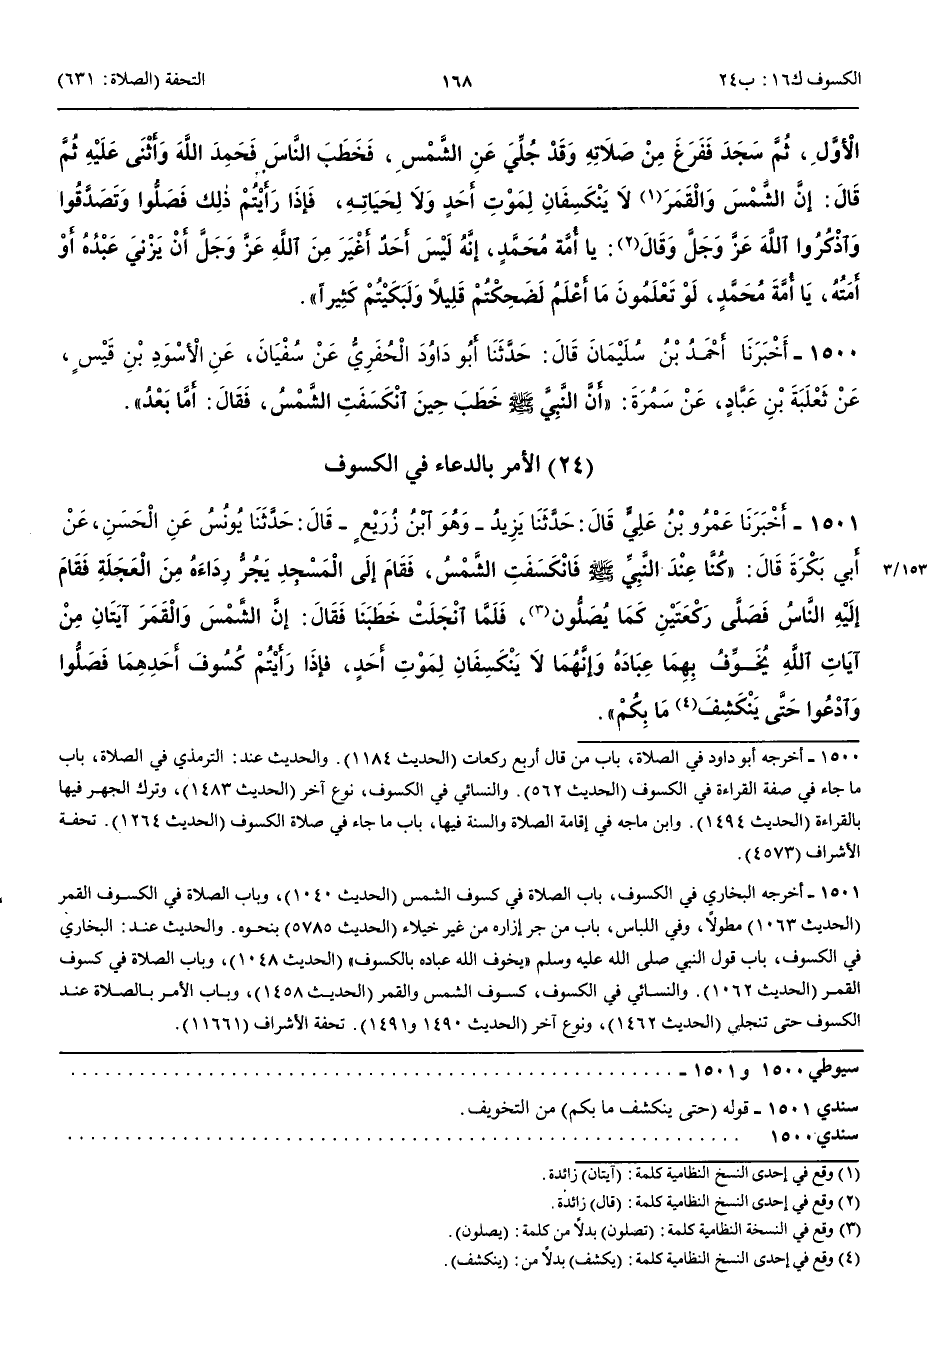 الكسوف ك١٦: ب٢٤ ١٦٨ التحفة (الصلاة: ٦٣١)
الْأَوَّلِ، ثُمَّ سَجَدَ فَفَرَغَ مِنْ صَلَاتِهِ وَقَدْ جُلِّيَ عَنِ الشَّمْسِ، فَخَطَبَ النَّاسَ فَحَمِدَ اللَّهَ وَأَثْنَى عَلَيْهِ ثُمَّ
قَالَ: إِنَّ الشَّمْسَ وَالْقَمَرَ(١) لَا يَنْكَسِفَانِ لِمَوْتِ أَحَدٍ وَلَا لِحَيَاتِهِ، فَإِذَا رَأَيْتُمْ ذٰلِكَ فَصَلُّوا وَتَصَدَّقُوا
وَٱذْكُرُوا ٱللَّهَ عَزَّ وَجَلَّ وَقَالَ(٢): يا أُمَّة مُحَمَّدٍ، إِنَّهُ لَيْسَ أَحَدٌ أَغْيَرَ مِنَ ٱللَّهِ عَزَّ وَجَلَّ أَنْ يَزْنِيَ عَبْدُهُ أَوْ
أَمَتُهُ، يَا أُمَّةَ مُحَمَّدٍ، لَوْ تَعْلَمُونَ مَا أَعْلَمُ لَضَحِكْتُمْ قَلِيلًا وَلَبَكَيْتُمْ كَثِيراً».
١٥٠٠ - أَخْبَرَنَا أَحْمَدُ بْنُ سُلَيْمَانَ قَالَ: حَدَّثَنَا أَبُو دَاوُدَ الْحُفَرِيُّ عَنْ سُفْيَانَ، عَنِ الْأَسْوَدِ بْنِ قَيْسٍ،
عَنْ ثَعْلَبَةَ بْنِ عَبَّادٍ، عَنْ سَمُرَةَ: «أَنَّ النَّبِيَّ ﷺ خَطَبَ حِينَ ٱنْكَسَفَتِ الشَّمْسُ، فَقَالَ: أَمَّا بَعْدُ».
(٢٤) الأمر بالدعاء في الكسوف
١٥٠١ - أَخْبَرَنَا عَمْرُو بْنُ عَلِيٍّ قَالَ: حَدَّثَنَا يَزِيدُ - وَهُوَ ٱبْنُ زُرَيْعٍ - قَالَ: حَدَّثَنَا يُونُسُ عَنِ الْحَسَنِ، عَنْ
أَبِي بَكْرَةَ قَالَ: «كُنَّا عِنْدَ النَّبِيِّ ﷺ فَانْكَسَفَتِ الشَّمْسُ، فَقَامَ إِلَى الْمَسْجِدِ يَجُرُّ رِدَاءَهُ مِنَ الْعَجَلَةِ فَقَامَ ٣/١٥٣
إِلَيْهِ النَّاسُ فَصَلَّى رَكْعَتَيْنِ كَمَا يُصَلُّونَ(٣)، فَلَمَّا ٱنْجَلَتْ خَطَبَنَا فَقَالَ: إِنَّ الشَّمْسَ وَالْقَمَرَ آيَتَانِ مِنْ
آيَاتِ ٱللَّهِ يُخَوِّفُ بِهِمَا عِبَادَهُ وَإِنَّهُمَا لَا يَنْكَسِفَانِ لِمَوْتِ أَحَدٍ، فإذَا رَأَيْتُمْ كُسُوفَ أَحَدِهِمَا فَصَلُّوا
وَٱدْعُوا حَتَّى يَنْكَشِفَ(٤) مَا بِكُمْ».
١٥٠٠ - أخرجه أبو داود في الصلاة، باب من قال أربع ركعات (الحديث ١١٨٤). والحديث عند: الترمذي في الصلاة، باب
ما جاء في صفة القراءة في الكسوف (الحديث ٥٦٢). والنسائي في الكسوف، نوع آخر (الحديث ١٤٨٣)، وترك الجهر فيها
بالقراءة (الحديث ١٤٩٤). وابن ماجه في إقامة الصلاة والسنة فيها، باب ما جاء في صلاة الكسوف (الحديث ١٢٦٤). تحفة
الأشراف (٤٥٧٣).
١٥٠١ - أخرجه البخاري في الكسوف، باب الصلاة في كسوف الشمس (الحديث ١٠٤٠)، وباب الصلاة في الكسوف القمر
(الحديث ١٠٦٣) مطولاً، وفي اللباس، باب من جر إزاره من غير خيلاء (الحديث ٥٧٨٥) بنحوه. والحديث عند: البخاري
في الكسوف، باب قول النبي صلى الله عليه وسلم «يخوف الله عباده بالكسوف» (الحديث ١٠٤٨)، وباب الصلاة في كسوف
القمر (الحديث ١٠٦٢). والنسائي في الكسوف، كسوف الشمس والقمر (الحديث ١٤٥٨)، وباب الأمر بالصلاة عند
الكسوف حتى تنجلي (الحديث ١٤٦٢)، ونوع آخر (الحديث ١٤٩٠ و١٤٩١). تحفة الأشراف (١١٦٦١).
سيوطي ١٥٠٠ و١٥٠١ - ................................................
سندي ١٥٠١ - قوله (حتى ينكشف ما بكم) من التخويف.
سندي ١٥٠٠ ................................................
(١) وقع في إحدى النسخ النظامية كلمة: (آيتان) زائدة.
(٢) وقع في إحدى النسخ النظامية كلمة: (قال) زائدة.
(٣) وقع في النسخة النظامية كلمة: (تصلون) بدلاً من كلمة: (يصلون).
(٤) وقع في إحدى النسخ النظامية كلمة: (يكشف) بدلاً من: (ينكشف).